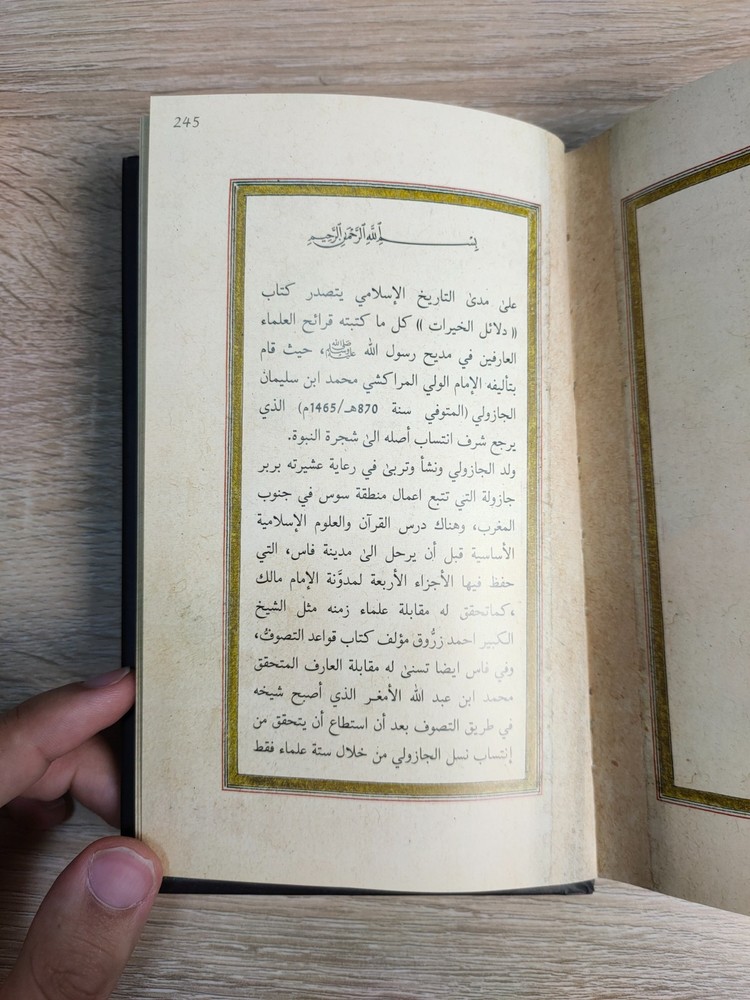 245
بسم الله الرحمن الرحيم
على مدى التاريخ الإسلامي يتصدر كتاب
(( دلائل الخيرات )) كل ما كتبته قرائح العلماء
العارفين في مديح رسول الله ﷺ، حيث قام
بتأليفه الإمام الولي المراكشي محمد ابن سليمان
الجازولي (المتوفي سنة 870هـ/1465م) الذي
يرجع شرف انتساب أصله الىٰ شجرة النبوة.
ولد الجازولي ونشأ وتربىٰ في رعاية عشيرته بربر
جازولة التي تتبع اعمال منطقة سوس في جنوب
المغرب، وهناك درس القرآن والعلوم الإسلامية
الأساسية قبل أن يرحل الىٰ مدينة فاس، التي
حفظ فيها الأجزاء الأربعة لمدوَّنة الإمام مالك
،كماتحقق له مقابلة علماء زمنه مثل الشيخ
الكبير احمد زرُّوق مؤلف كتاب قواعد التصوفُ،
وفي فاس ايضا تسنىٰ له مقابلة العارف المتحقق
محمد ابن عبد الله الأمغـر الذي أصبح شيخه
في طريق التصوف بعد أن استطاع أن يتحقق من
إنتساب نسل الجازولي من خلال ستة علماء فقط